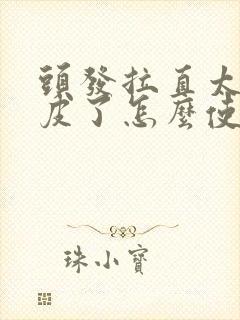 頭發拉直太
皮了怎麼使
珠小寶